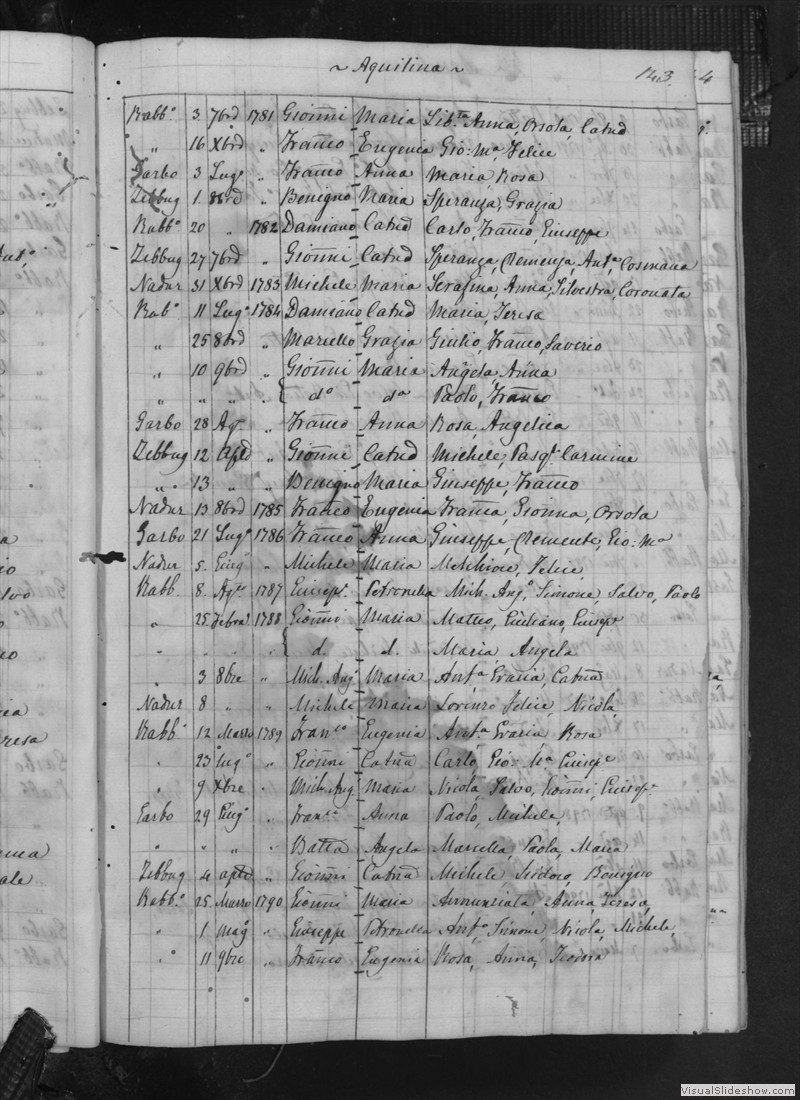 ~ Aquilina ~
4
Rabb.º 3 7brd 1781 Gioñni Maria Lib.ta Anna, Orsola, Catrd
„ 16 Xbrd „ Frañco Eugenia Gio: Mª, Felice
Garbo 3 Lugº „ Frañco Anna Maria, Rosa
Zebbug 1 8brd „ Benigno Maria Speranza, Grazia
Rabbº 20 „ 1782 Damiano Catrd Carlo, Frañco, Giuseppe
Zebbug 27 7brd „ Gioñni Catrd Speranza, Clemenza, Antª, Cosmana
Nadur 31 Xbrd 1783 Michele Maria Serafina, Anna, Silvestra, Coronata
Rabº 11 Lugº 1784 Damiano Catrd Maria, Teresa
„ 25 8brd „ Marcello Grazia Giulio, Frañco, Saverio
„ 10 9brd „ Gioñni Maria Angela Anna
„ „ „ „ { dº dª Paolo, Frañco
Garbo 28 Agº „ Frañco Anna Rosa, Angelica
Zebbug 12 „ Gioñni Catrd Michele, Pasq. Carmine
„ 13 „ „ Benigno Maria Giuseppe, Frañco
Nadur 13 8brd 1785 Frañco Eugenia Frañca, Gionna, Orsola
Garbo 21 Lugº 1786 Frañco Anna Giuseppe, Clemente, Gio: Mª
Nadur 5 Giugº „ Michele Maria Melchiore, Felice
Rabb. 8 Agº 1787 Giusepe Petronella Mich. Angº, Simone, Salvo, Paolo
„ 25 Febrd 1788 Gioñni Maria Matteo, Giuliano, Giusepe
„ „ „ „ { d. d. Maria Angela
„ 3 8bre „ Mich. Ang. Maria Antª Grazia, Catña
Nadur 8 „ „ Michele Maria Lorenzo Felice, Nicola
Rabbº 12 Marzo 1789 Francº Eugenia Antª Grazia Rosa
„ 23 Lugº „ Gioñni Catña Carlo, Gio: Mª Giuspe
„ 9 Xbre „ Mich. Ang. Maria Nicola, Salvo, Gioñni, Giuspe
Garbo 29 Giugº „ Francº Anna Paolo, Michele,
„ „ „ „ Batta Angela Marcella, Paola, Maria
Zebbug 4 „ Gioñni Catrd Michele, Isidoro, Benigno
Rabbº 25 Marzo 1790 Gioñni Maria Annunziata, Anna Teresa,
„ 1 Magº „ Giuseppe Petronella Antª, Simone, Nicola, Michele
„ 11 9bre „ Frañco Eugenia Rosa, Anna, Teodora
VisualSlideshow.com